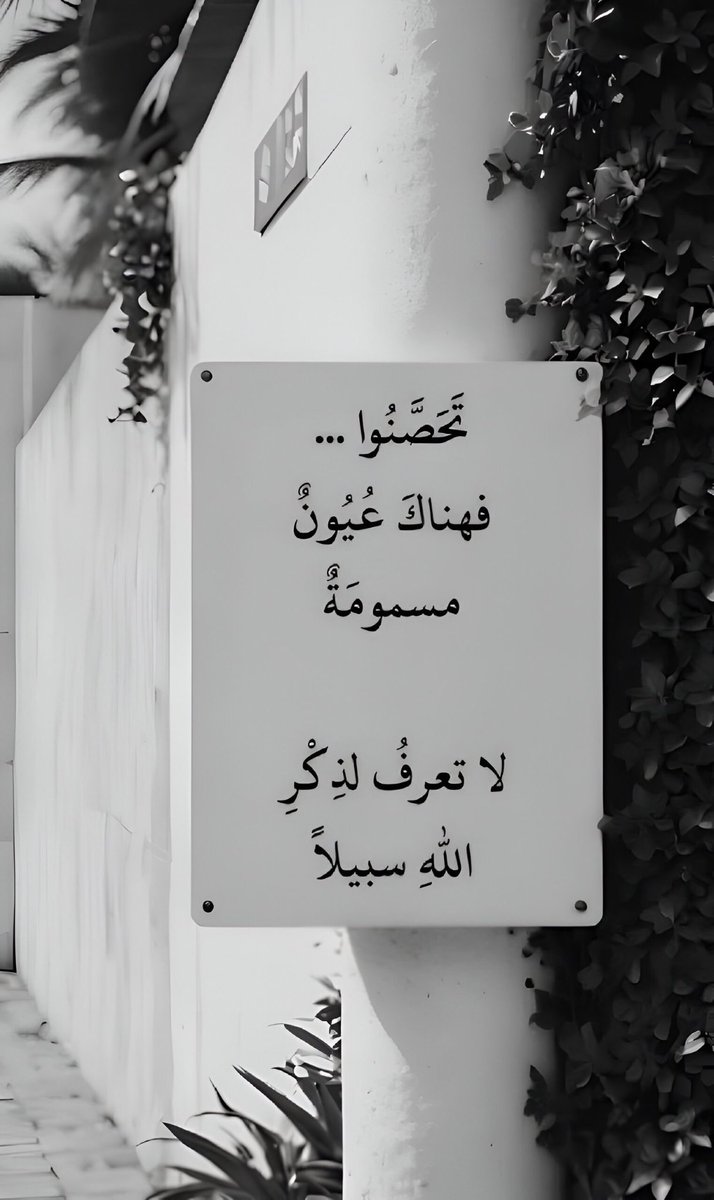 تَحَصَّنُوا ...
فهناكَ عُيُونٌ
مسمومَةٌ
لا تعرفُ لذِكْرِ
اللهِ سبيلاً